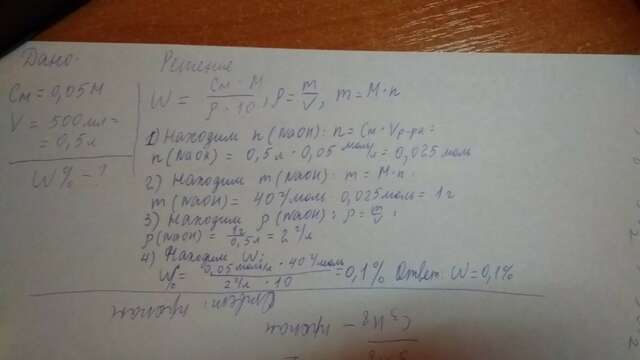 Дано:
Решение
Cм = 0,05М
V = 500мл =
= 0,5л
W% - ?
W = Cм · M / ρ · 10, ρ = m/V, m = M·n
1) Находим n (NaOH): n = Cм · Vр-ра =
n (NaOH) = 0,5л · 0,05 моль/л = 0,025 моль
2) Находим m (NaOH): m = M·n
m (NaOH) = 40 г/моль · 0,025моль = 1г
3) Находим ρ (NaOH): ρ = m/V
ρ (NaOH) = 1г/0,5л = 2 г/л
4) Находим W:
W% = 0,05 моль/л · 40 г/моль / 2 г/л · 10 = 0,1% Ответ: W = 0,1%
пропан
C3H8 – пропан